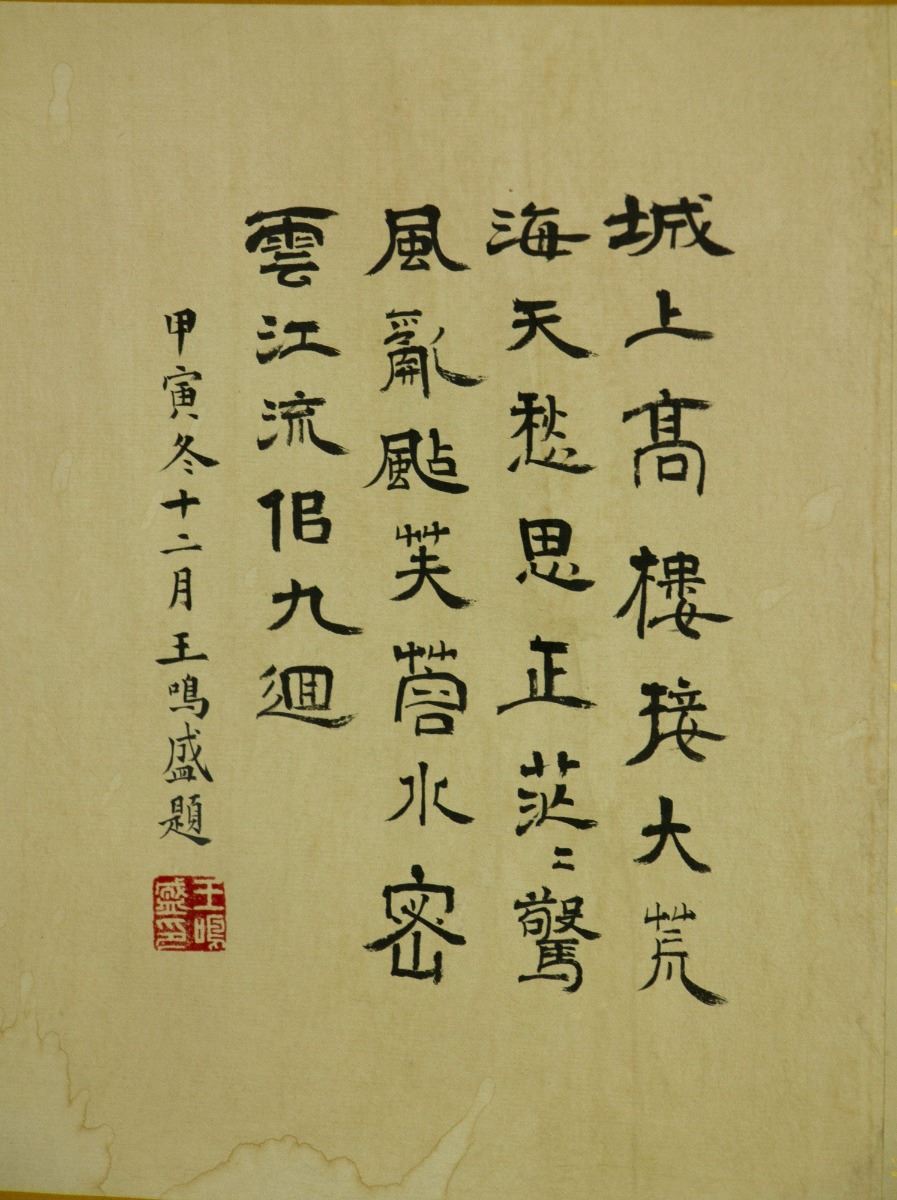 城上高樓接大荒
海天愁思正茫〻驚
風亂颭芙蓉水密
雲江流佀九迴
甲寅冬十二月王鳴盛題
王鳴盛印